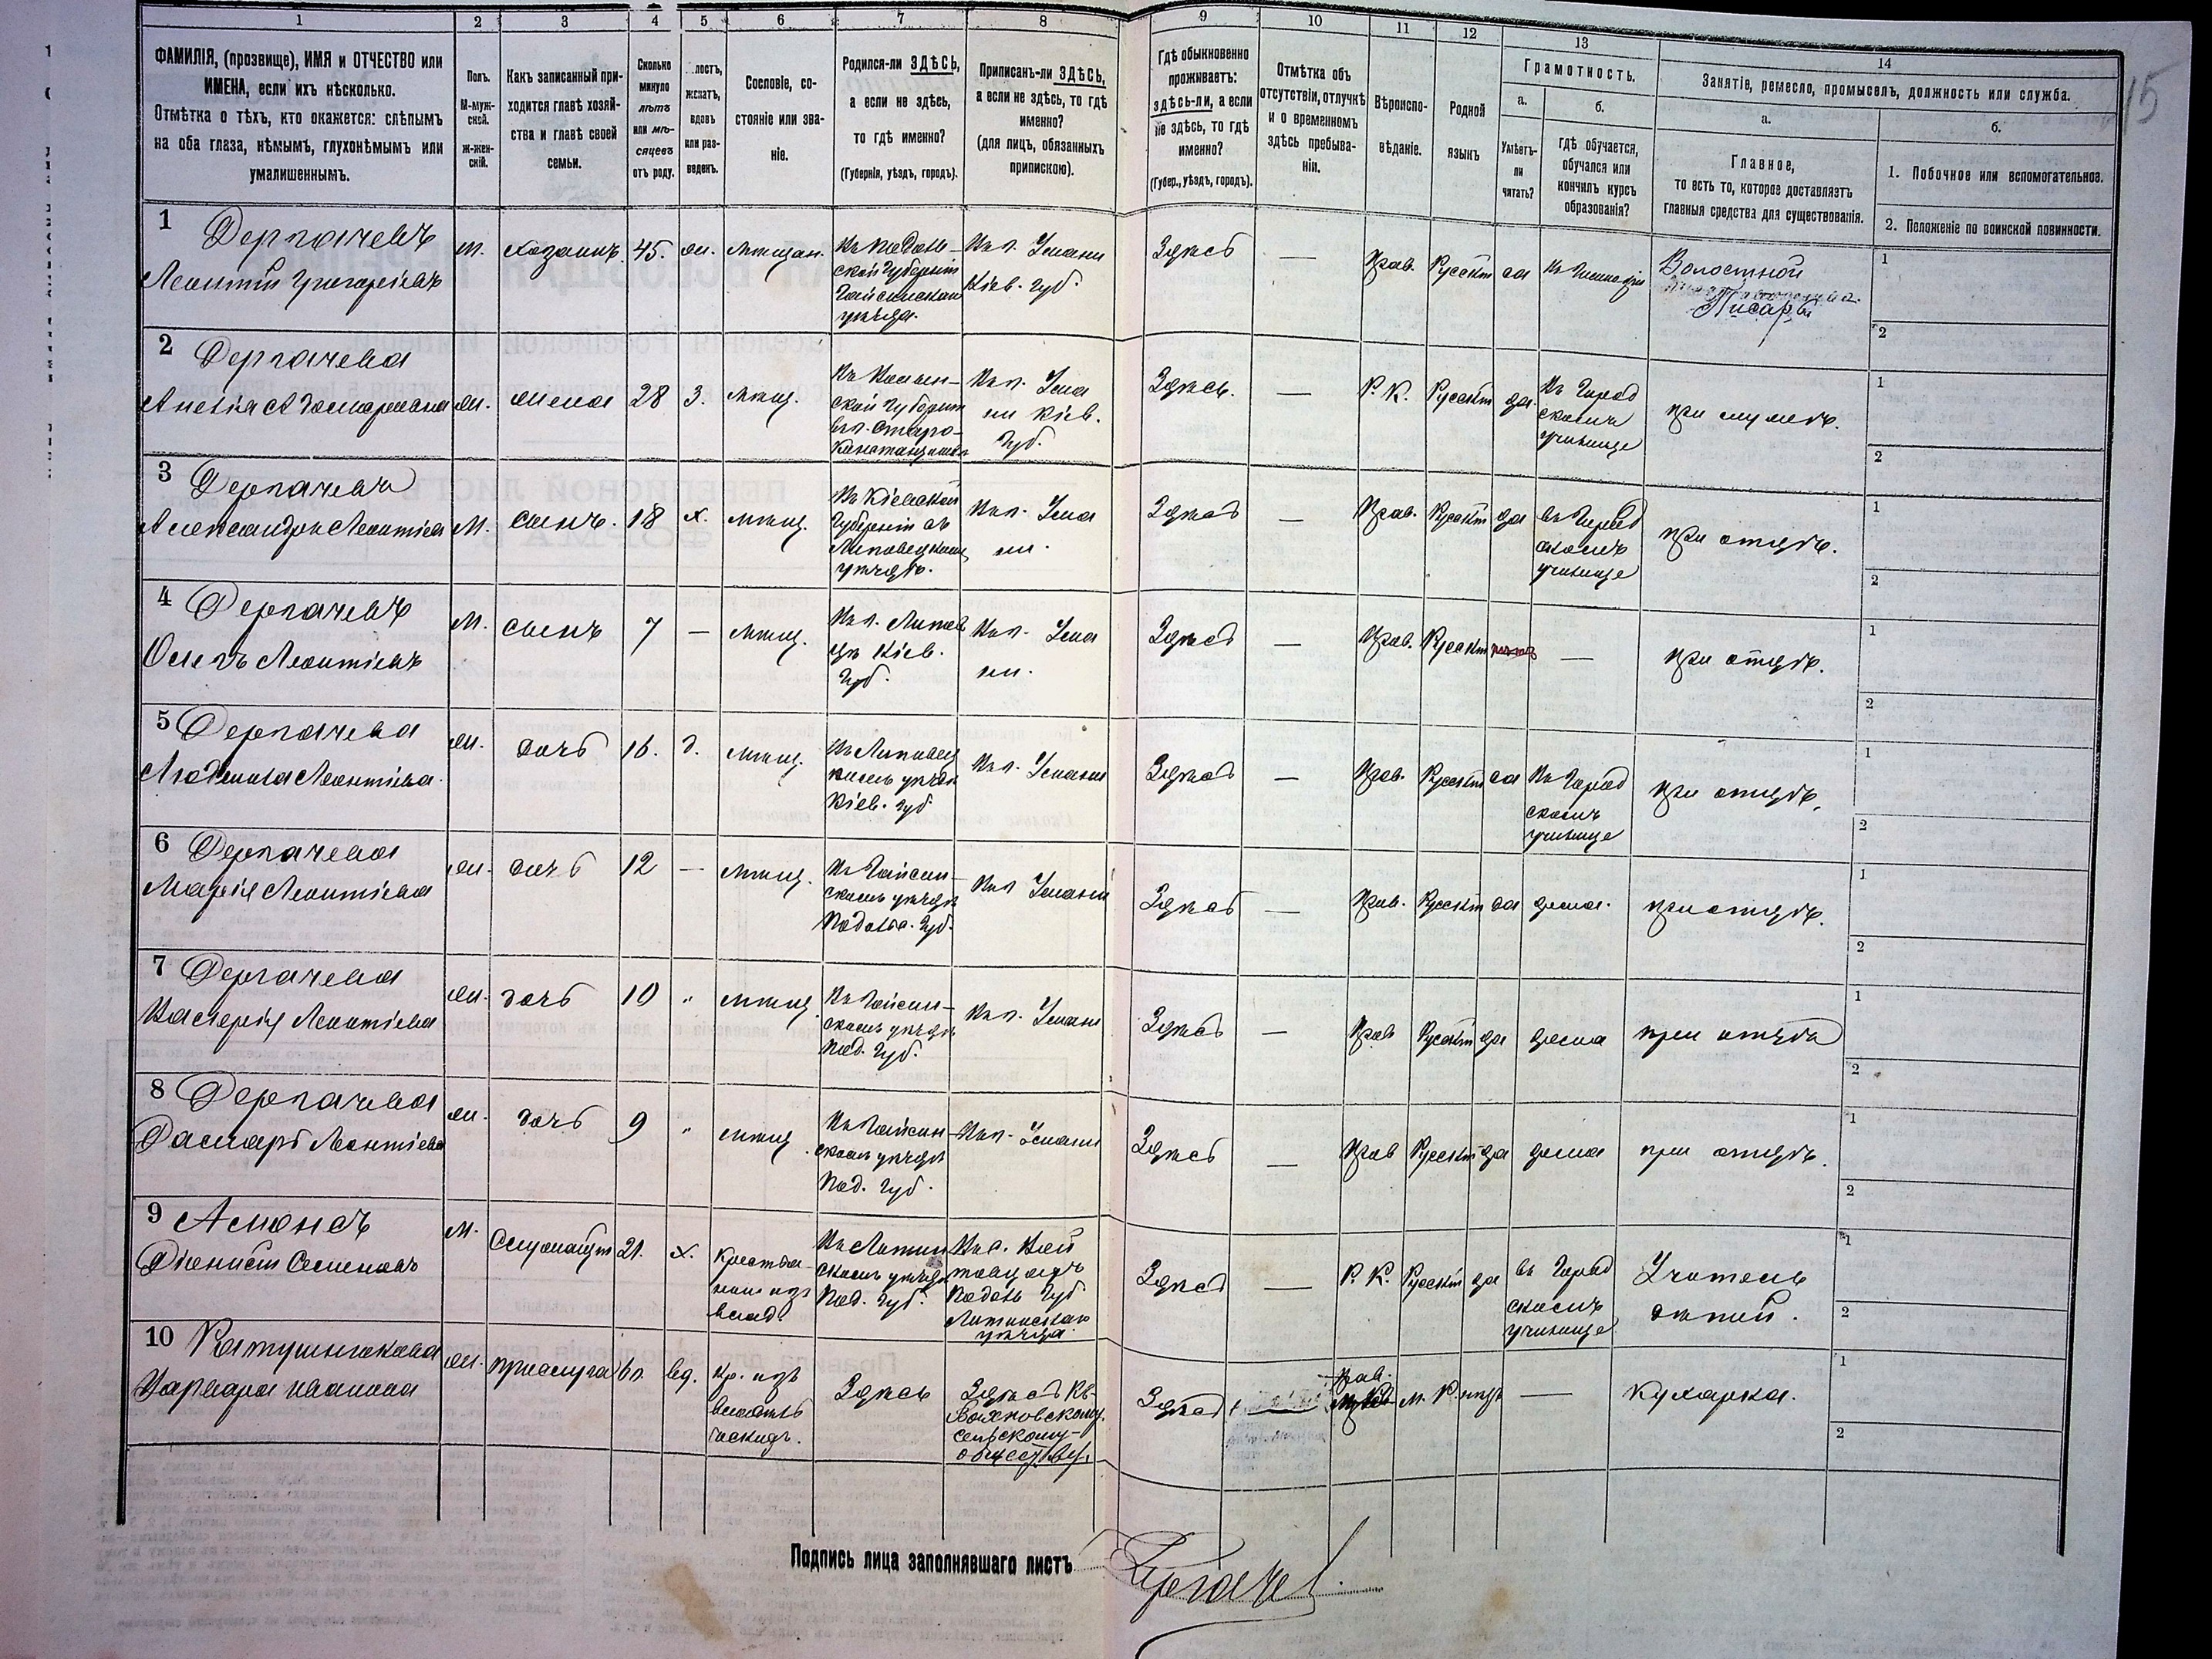 1 2 3 4 5 6 7 8 9 10 11 12 13 14
15
ФАМИЛІЯ, (прозвище), ИМЯ и ОТЧЕСТВО или
ИМЕНА, если ихъ нѣсколько.
Отмѣтка о тѣхъ, кто окажется: слѣпымъ
на оба глаза, нѣмымъ, глухонѣмымъ или
умалишеннымъ.
Полъ.
М-муж-
ской.
ж-жен-
скій.
Какъ записанный при-
ходится главѣ хозяй-
ства и главѣ своей
семьи.
Сколько
минуло
лѣтъ
или мѣ-
сяцевъ
отъ роду.
лостъ,
женатъ,
вдовъ
или раз-
веденъ.
Сословіе, со-
стояніе или зва-
ніе.
Родился-ли ЗДѢСЬ,
а если не здѣсь,
то гдѣ именно?
(Губернія, уѣздъ, городъ).
Приписанъ-ли ЗДѢСЬ,
а если не здѣсь, то гдѣ
именно?
(для лицъ, обязанныхъ
припискою).
Гдѣ обыкновенно
проживаетъ:
здѣсь-ли, а если
не здѣсь, то гдѣ
именно?
(Губер., уѣздъ, городъ).
Отмѣтка объ
отсутствіи, отлучкѣ
и о временномъ
здѣсь пребыва-
ніи.
Вѣроиспо-
вѣданіе.
Родной
языкъ
Грамотность.
а.
Умѣетъ-
ли
читать?
б.
гдѣ обучается,
обучался или
кончилъ курсъ
образованія?
Занятіе, ремесло, промыселъ, должность или служба.
а.
Главное,
то есть то, которое доставляетъ
главныя средства для существованія.
б.
1. Побочное или вспомогательное.
2. Положеніе по воинской повинности.
1 Дергачевъ
Леонтій Григоріевъ
м. хозяинъ 45. ж. мѣщан.
Въ Подоль-
ской Губерніи
Гайсинскаго
уѣзда.
Въ г. Умани
Кіев. Губ.
Здѣсь — Прав. Русскій да
Волостной
Писарь
1
2
2 Дергачева
ж. жена 28 З. мѣщ.
Въ Волын-
ской Губерніи
въ г. Старо-
Константинов
Въ г. Ума
ни Кіев.
Губ.
Здѣсь. — Р. К. Русскій да.
Въ Город
скомъ
училище
при мужѣ.
1
2
3 Дергачевъ
Александръ Леонтіев
М. сынъ. 18 х. мѣщ.
Въ Кіевской
Губерніи въ
Липовецкомъ
уѣздѣ.
Въ г. Ума
ни.
Здѣсь — Прав. Русскій да
въ Город
скомъ
училище
при отцѣ.
1
2
4 Дергачевъ
Олегъ Леонтіевъ
М. сынъ 7 — мѣщ.
Въ г. Липов
цѣ Кіев.
Губ.
Въ г. Ума
ни.
Здѣсь — Прав. Русскій нѣтъ — при отцѣ.
1
2
5 Дергачева
Людмила Леонтіева.
ж. дочь 16. д. мѣщ.
Въ Липовец
комъ уѣздѣ
Кіев. Губ
Въ г. Умани
Здѣсь — Прав. Русскій да
Въ Город
скомъ
училище
при отцѣ.
1
2
6 Дергачева
Марія Леонтіева
ж. дочь 12 — мѣщ.
Въ Гайсин-
скомъ уѣздѣ
Подольс. Губ.
Въ г Умани
Здѣсь — Прав. Русскій да дома. при отцѣ.
1
2
7 Дергачева
Валерія Леонтіева
ж. дочь 10 " мѣщ.
Въ Гайсин-
скомъ уѣздѣ
Под. Губ.
Въ г. Умани
Здѣсь — Прав Русскій да дома при отцѣ
1
2
8 Дергачева
Тамара Леонтіева
ж. дочь 9 " мѣщ.
Въ Гайсин-
скомъ уѣздѣ
Под. Губ.
Въ г. Умани
Здѣсь — Прав Русскій да дома при отцѣ.
1
2
9
М. 21. х.
Въ Литин
скомъ уѣздѣ
Под. Губ.
Подоль Губ
Литинскаго
уѣзда.
Здѣсь — Р. К. Русскій да
въ Город
скомъ
училище
Учитель
дѣтей.
1
2
10
Варвара Иванова
ж. прислуга вд.
Кр. изъ
Здѣсь
Здѣсь къ
Вахновскому
сельскому
обществу.
Здѣсь
Прав.
М. Р. — Кухарка.
1
2
Подпись лица заполнявшаго листъ
Дергачев